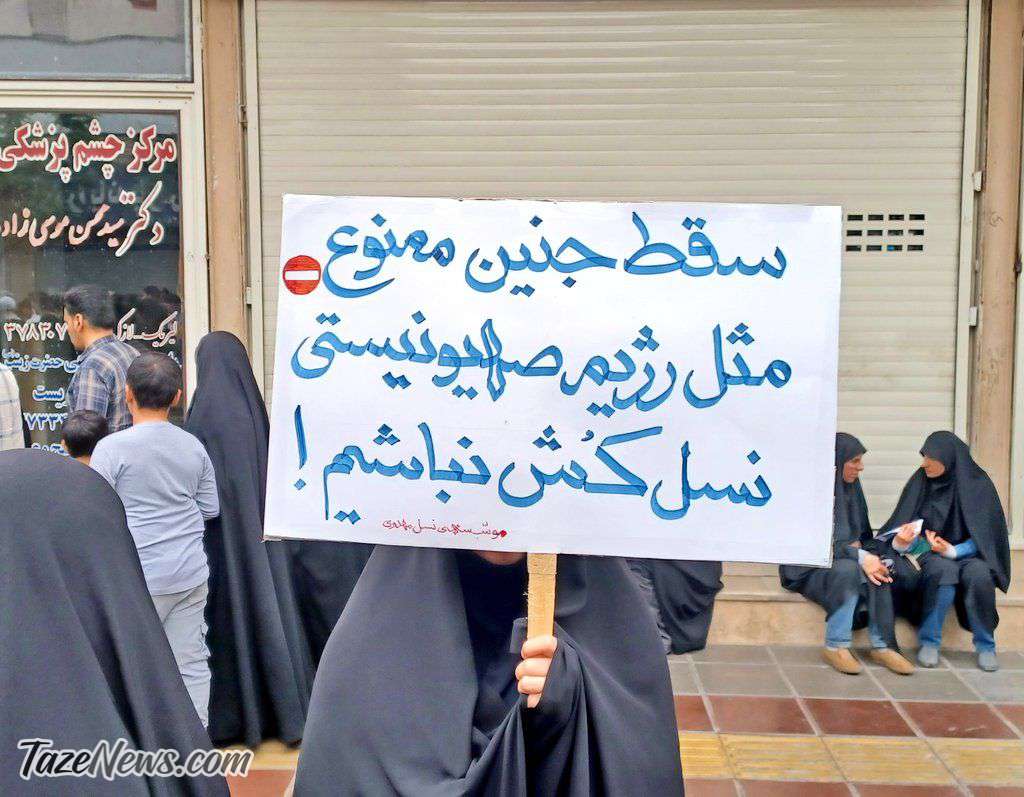 سقط جنین ممنوع
مثل رژیم صهیونیستی
نسل کُش نباشیم!
مرکز چشم پزشکی
دکتر سید محسن موسی زاده
TazeNews.com